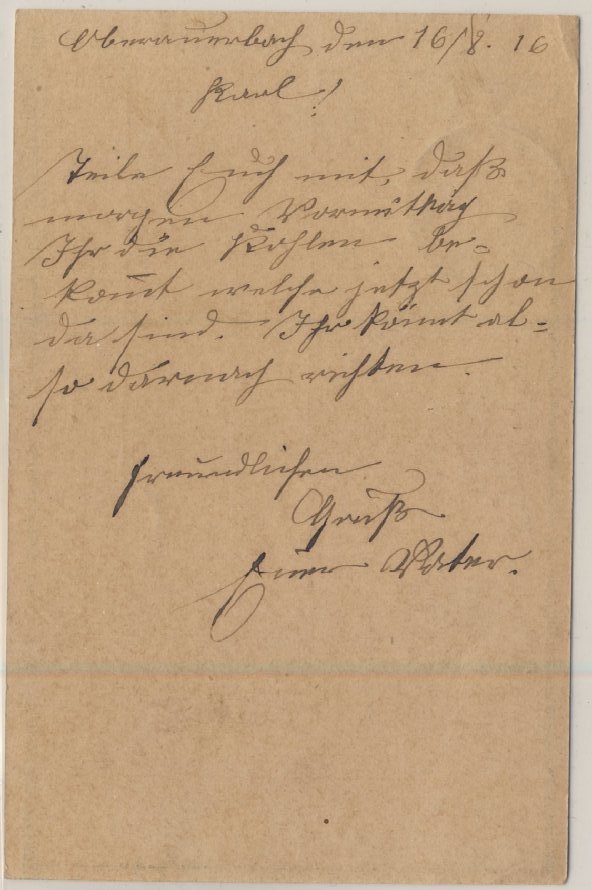 Oberauerbach den 16/8. 16
Karl!
Teile Euch mit, daß
morgen Vormittag
Ihr die Kohlen be=
kom̄t welche jetzt schon
da sind. Ihr könnt al=
so darnach richten.
Freundlichen
Gruß
Euer Vater.